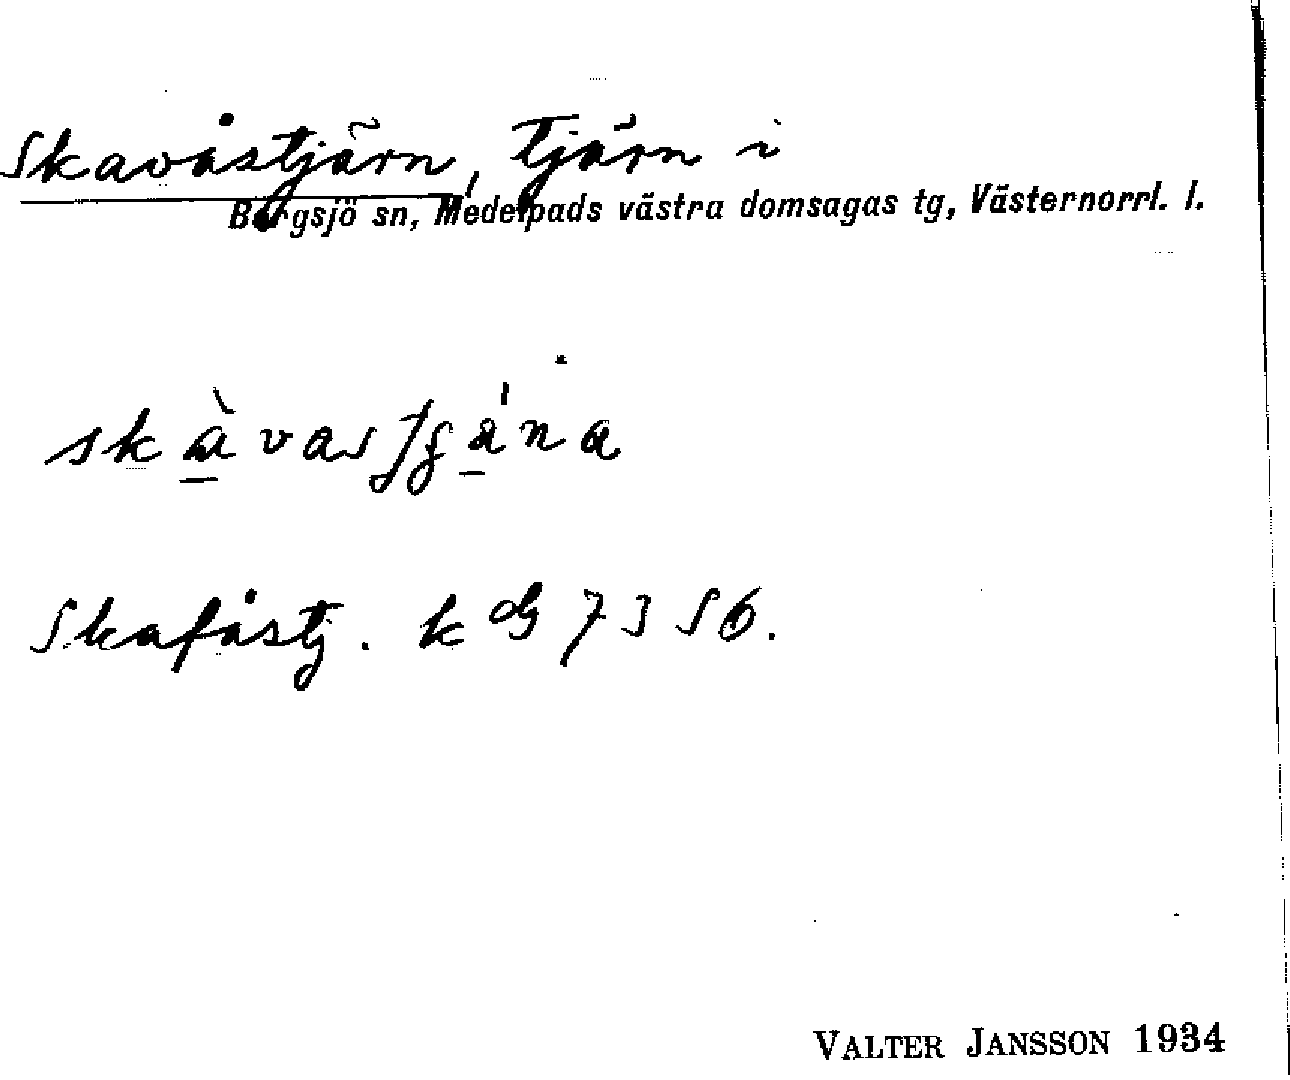 Skavåstjärn, tjärn i
Borgsjö sn, Medelpads västra domsagas tg, Västernorrl. l.
Skafåstj. k G 7356.
VALTER JANSSON 1934